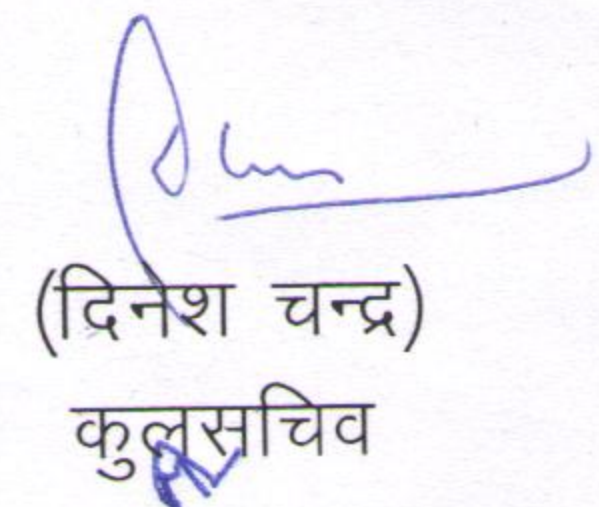 (दिनेश चन्द्र)
कुलसचिव